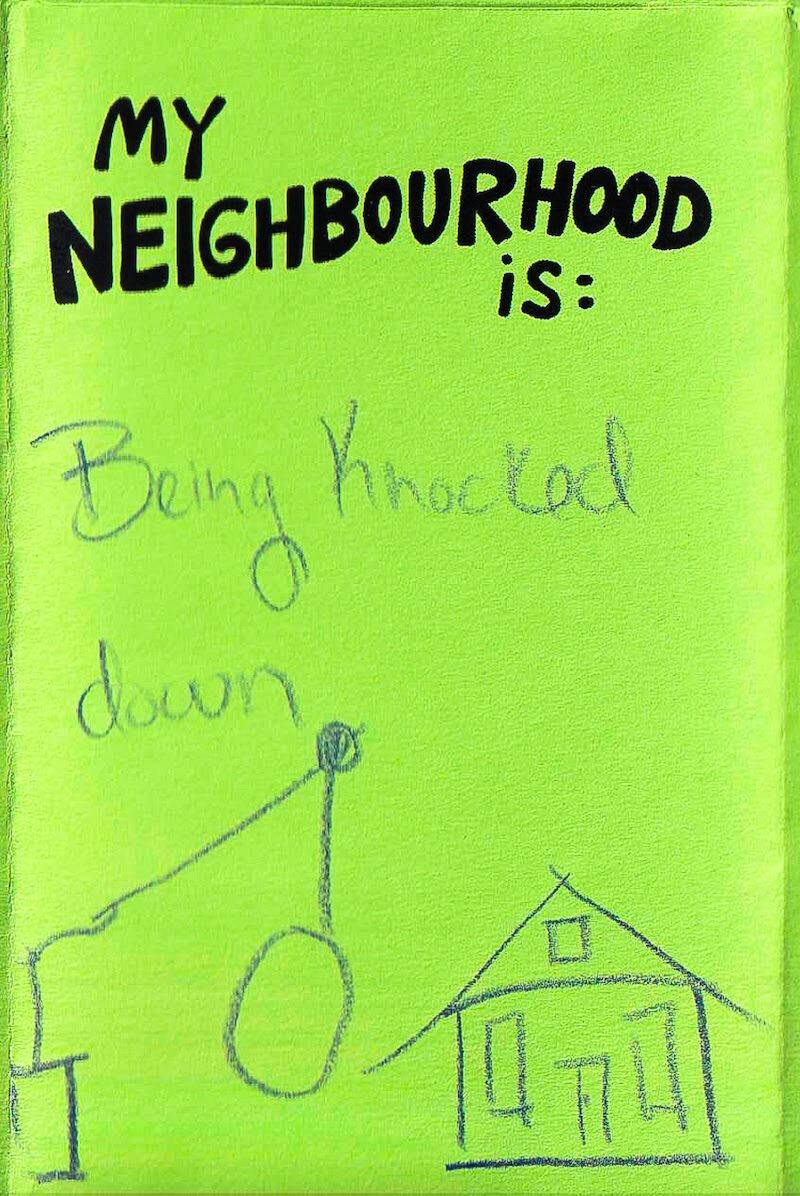 MY
NEIGHBOURHOOD
is:
Being Knocked
down